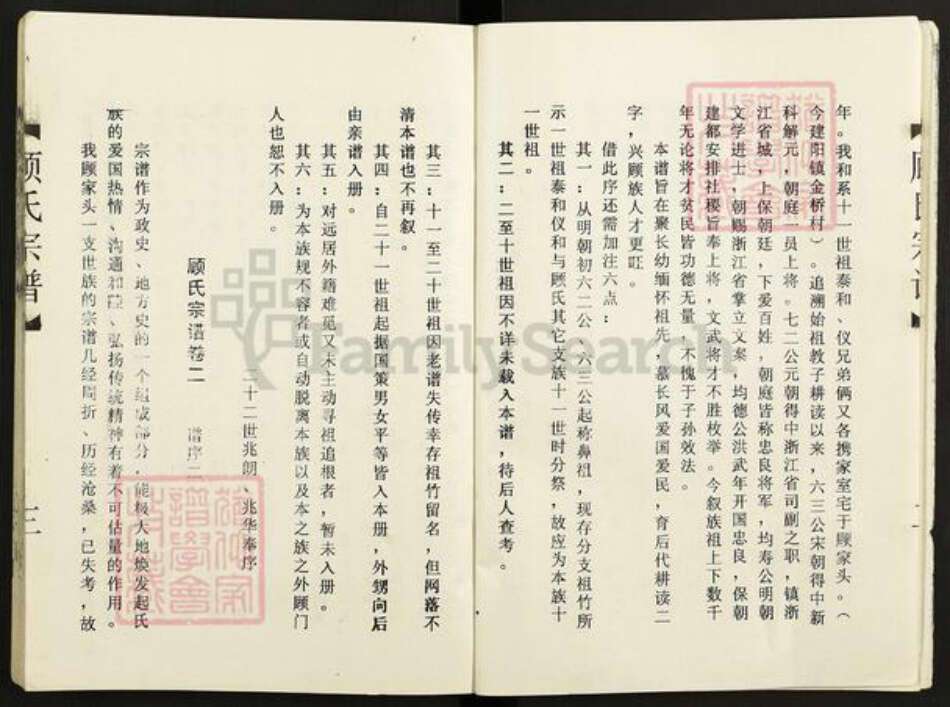 顾氏宗谱
二
年。我和系十一世祖泰和、仪兄弟俩又各携家室宅于顾家头。（
今建阳镇金桥村）。追溯始祖教子耕读以来，六三公宋朝得中新
科解元，朝庭一员上将。七二公元朝得中浙江省司副之职，镇浙
江省城，上保朝廷，下爱百姓，朝庭皆称忠良将军，均寿公明朝
文学进士，朝赐浙江省掌立文案，均德公洪武年开国忠良，保朝
建都安排社稷旨奉上将，文武将才不胜枚举。今叙族祖上下数千
年无论将才贫民皆功德无量，不愧于子孙效法。
本谱旨在聚长幼缅怀祖先，慕长风爱国爱民，育后代耕读二
字，兴顾族人才更旺。
借此序还需加注六点：
其一：从明朝初六二公、六三公起称鼻祖，现存分支祖竹所
示一世祖泰和仪和与顾氏其它支族十一世时分祭，故应为本族十
一世祖。
其二：二至十世祖因不详未载入本谱，待后人查考。
其三：十一至二十世祖因老谱失传幸存祖竹留名，但网落不
清本谱也不再叙。
其四：自二十一世祖起据国策男女平等皆入本册，外甥向后
由亲谱入册。
其五：对远居外籍难觅又未主动寻祖追根者，暂未入册。
其六：为本族规不容者或自动脱离本族以及本之族之外顾门
人也恕不入册。
三十二世兆朗、兆华奉序
顾氏宗谱卷二
谱序二
宗谱作为政史、地方史的一个组成部分，能极大地焕发起氏
族的爱国热情、沟通和睦、弘扬传统精神有着不可估量的作用。
我顾家头一支世族的宗谱几经周折、历经沧桑，已失考，故
顾氏宗谱
三
FamilySearch